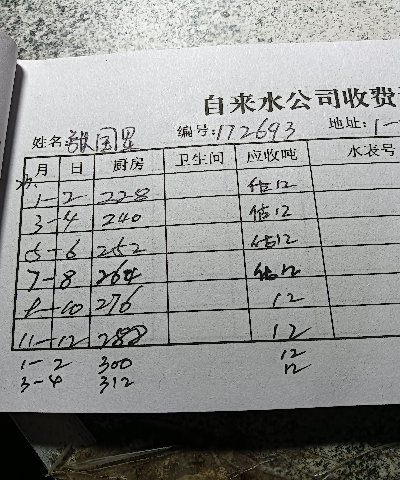 自来水公司收费
姓名 张国显 编号:172693 地址:1-
月 日 厨房 卫生间 应收吨 水表号
1-2 228 估12
3-4 240 估12
5-6 252 估12
7-8 264 估12
9-10 276 12
11-12 288 12
1-2 300 12
3-4 312 12